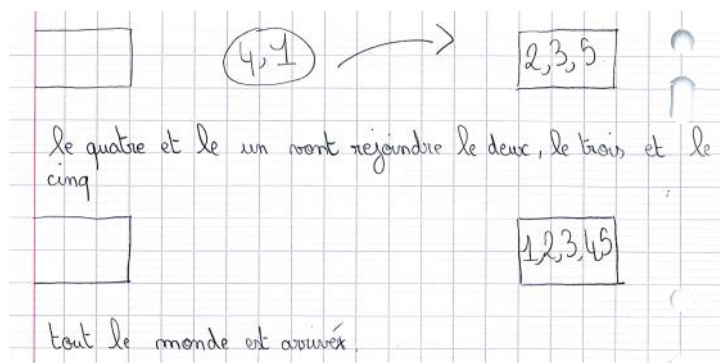 4,1 2,3,5
le quatre et le un vont rejoindre le deux, le trois et le
cinq
1,2,3,4,5
tout le monde est arrivéx.